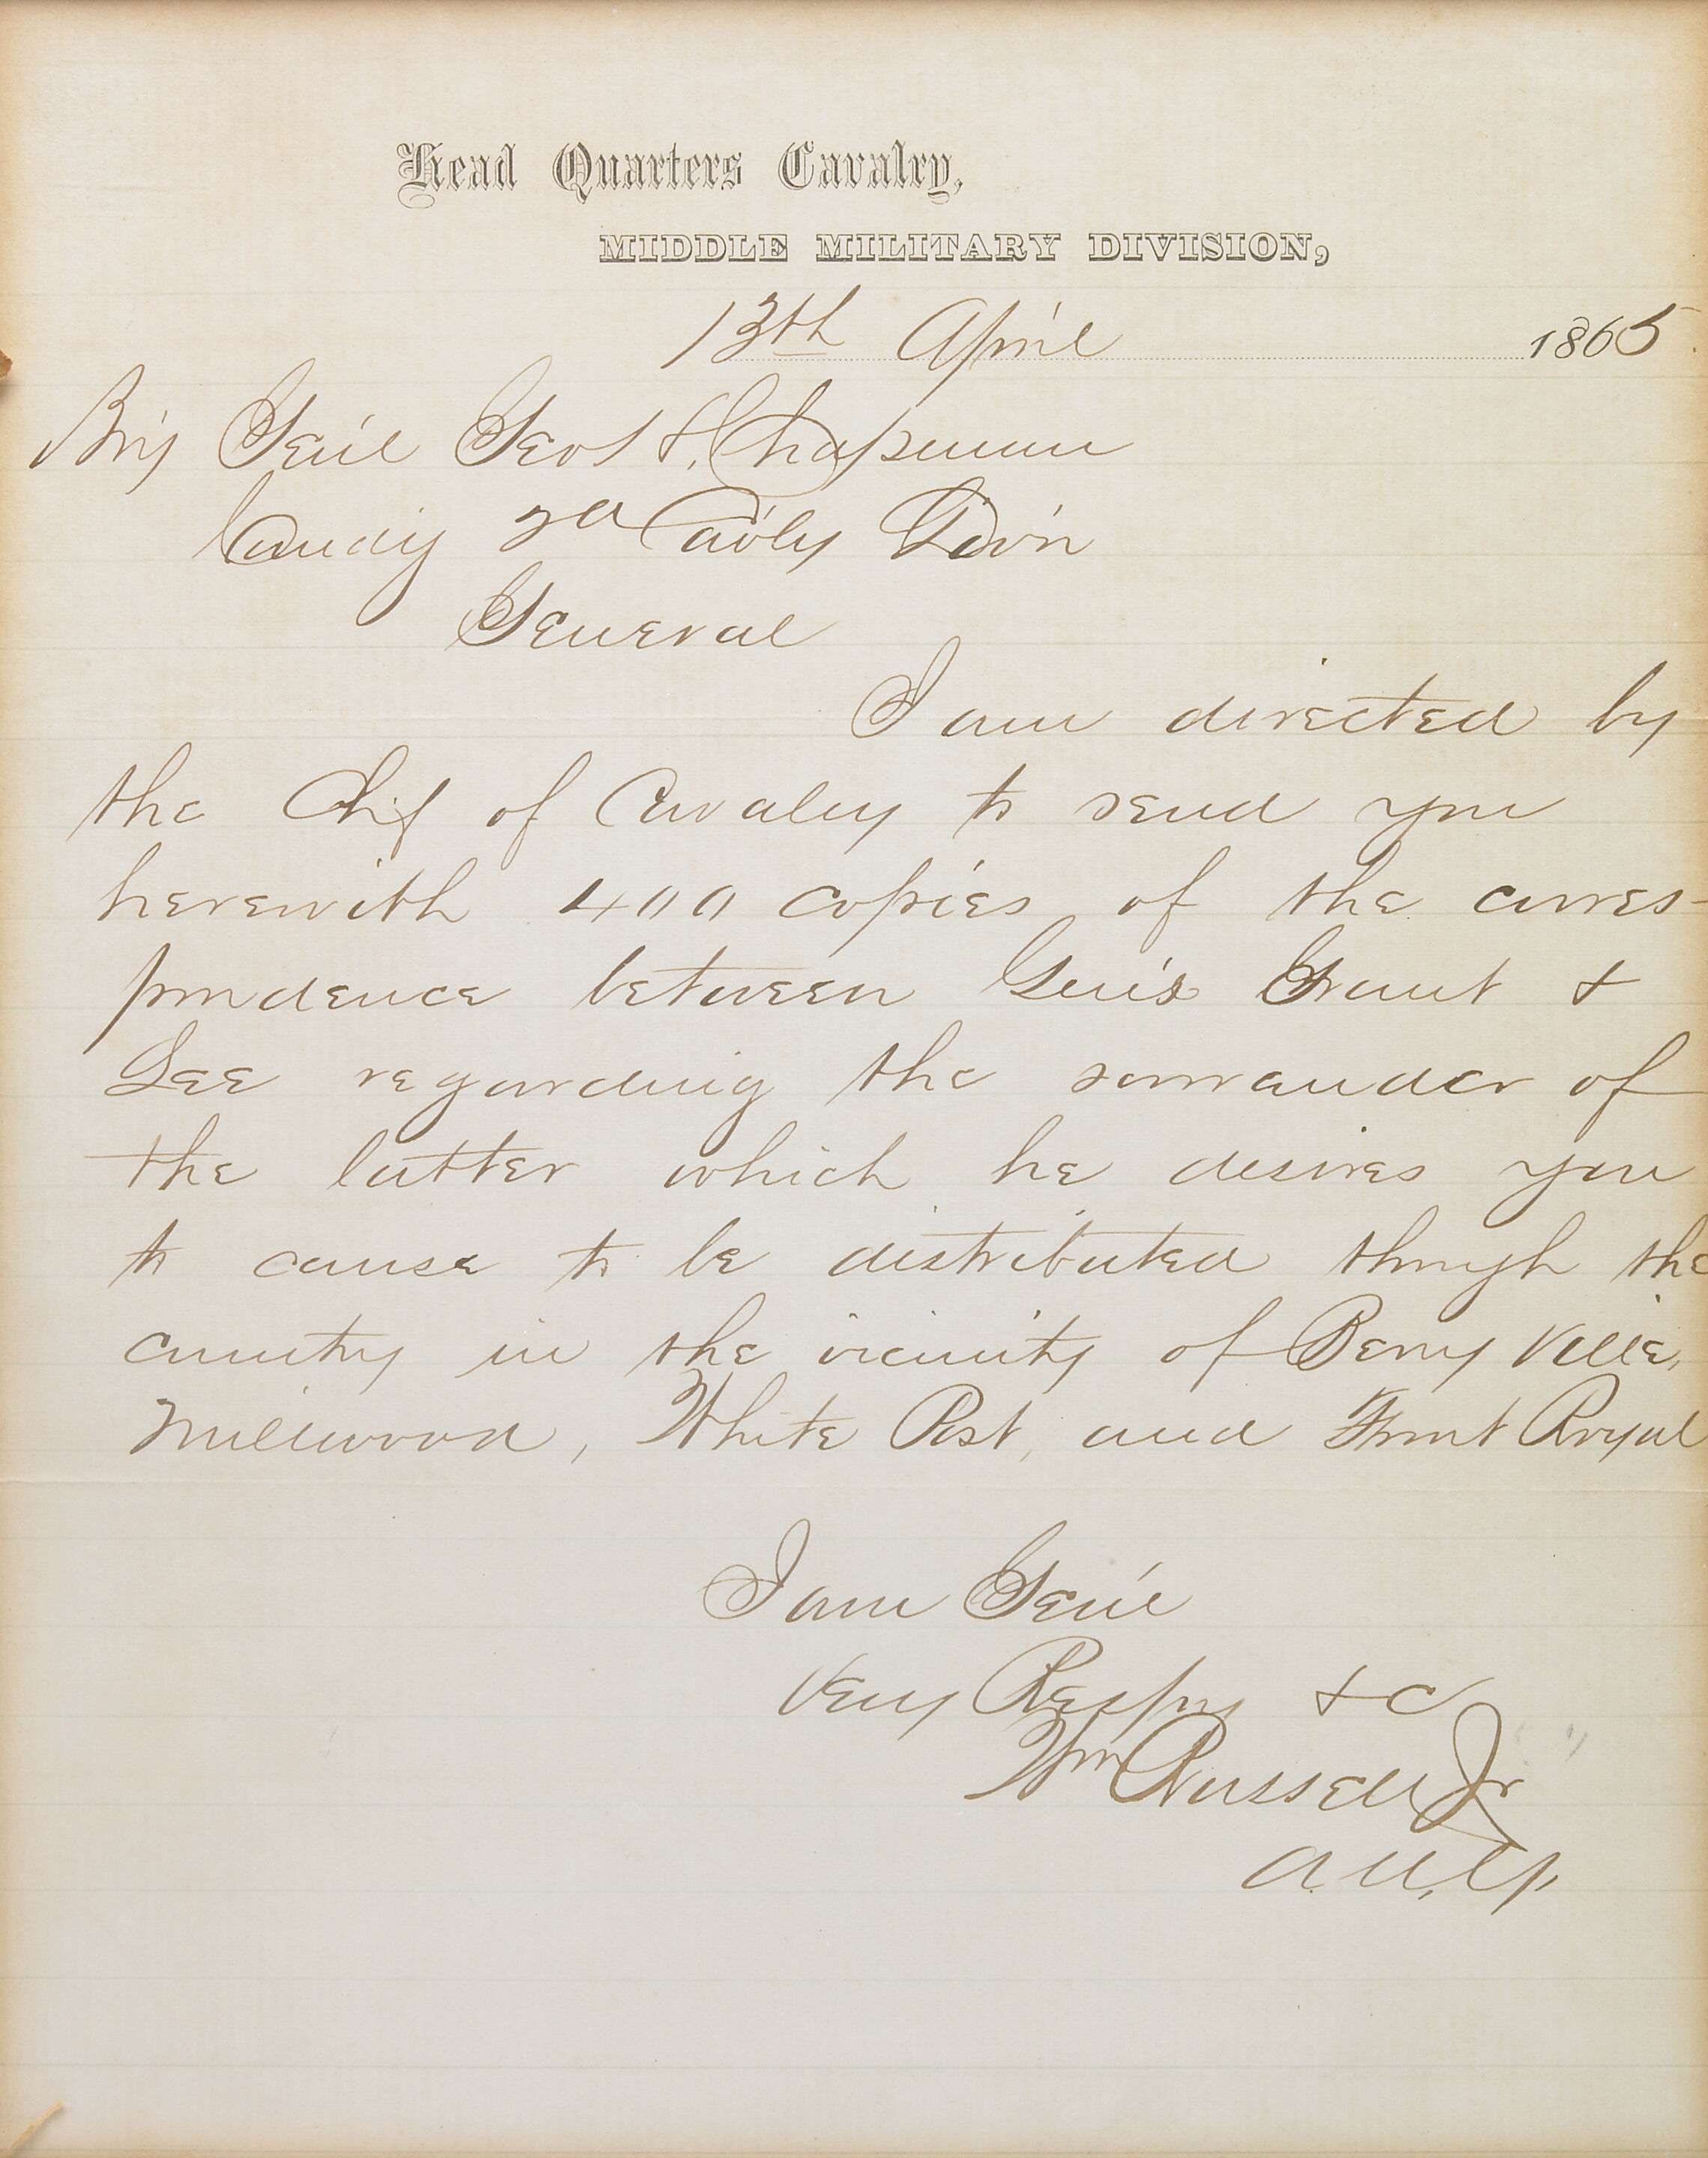 Head Quarters Cavalry,
MIDDLE MILITARY DIVISION,
13th April 1865
Brig Gen'l Geo H. Chapman
Comdg 2d Cav'ly Div'n
General
I am directed by
the Chif of Cavalry to send you
herewith 400 copies of the corres-
pondence between Gen's Grant &
Lee regarding the surrender of
the latter which he desires you
to cause to be distributed through the
country in the vicinity of Berry Ville,
Millwood, White Post, and Front Royal
I am Gen'l
Very Respy &c
Wm Russell Jr
A.A.G.